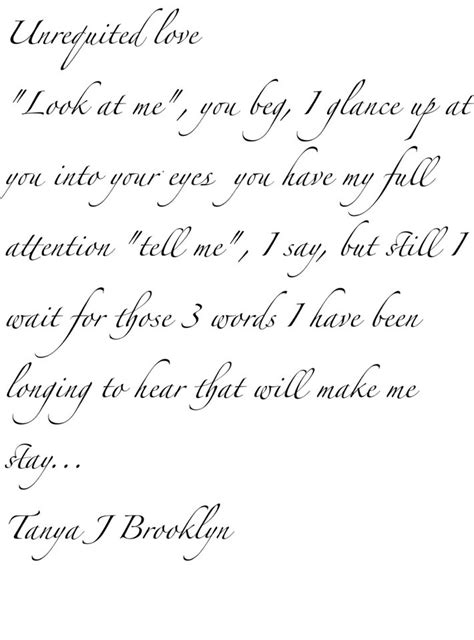 Unrequited love
"Look at me", you beg, I glance up at
you into your eyes you have my full
attention "tell me", I say, but still I
wait for those 3 words I have been
longing to hear that will make me
stay...
Tanya J Brooklyn